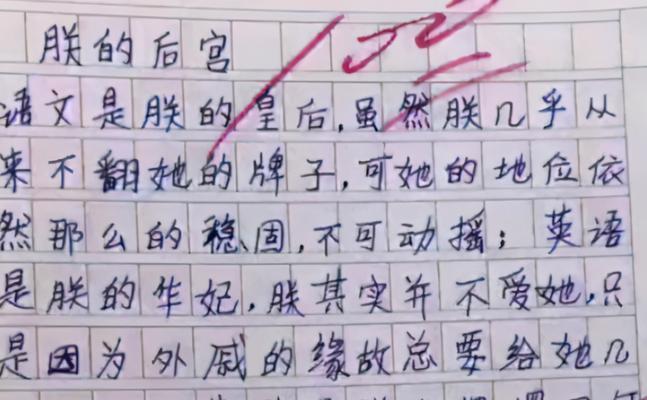 朕的后宫
语文是朕的皇后,虽然朕几乎从
来不翻她的牌子,可她的地位依
然那么的稳固,不可动摇;英语
是朕的华妃,朕其实并不爱她,只
是因为外戚的缘故总要给她几